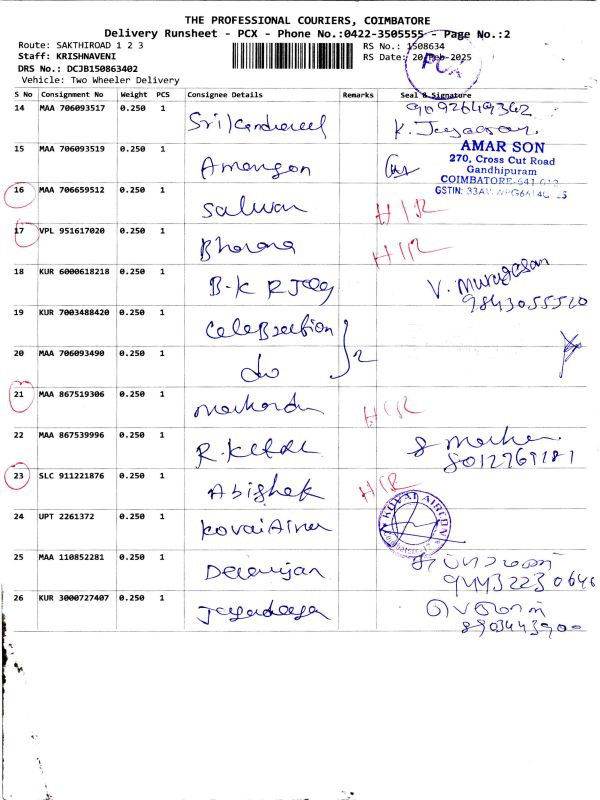 THE PROFESSIONAL COURIERS, COIMBATORE
Delivery Runsheet - PCX - Phone No.:0422-3505555 Page No.:2
Route: SAKTHIROAD 1 2 3
RS No.: 1508634
Staff: KRISHNAVENI
RS Date: 20-Feb-2025
PCX
DRS No.: DCJB150863402
Vehicle: Two Wheeler Delivery
S No Consignment No Weight PCS Consignee Details Remarks Seal & Signature
14 MAA 706093517 0.250 1 9092649362
15 MAA 706093519 0.250 1
AMAR SON
270, Cross Cut Road
Gandhipuram
COIMBATORE-641 012
GSTIN: 33A
16 MAA 706659512 0.250 1 Salwar HIR
17 VPL 951617020 0.250 1 Bharana HIR
18 KUR 6000618218 0.250 1 B-K R V. Murugesan
9843055520
19 KUR 7003488420 0.250 1 Celebration
20 MAA 706093490 0.250 1 do 2
21 MAA 867519306 0.250 1 HIR
22 MAA 867539996 0.250 1
8012769181
23 SLC 911221876 0.250 1 Abishek HIR
24 UPT 2261372 0.250 1 KovaiAirco KOVAI AIRCON
25 MAA 110852281 0.250 1
9443230646
26 KUR 3000727407 0.250 1
8903443900